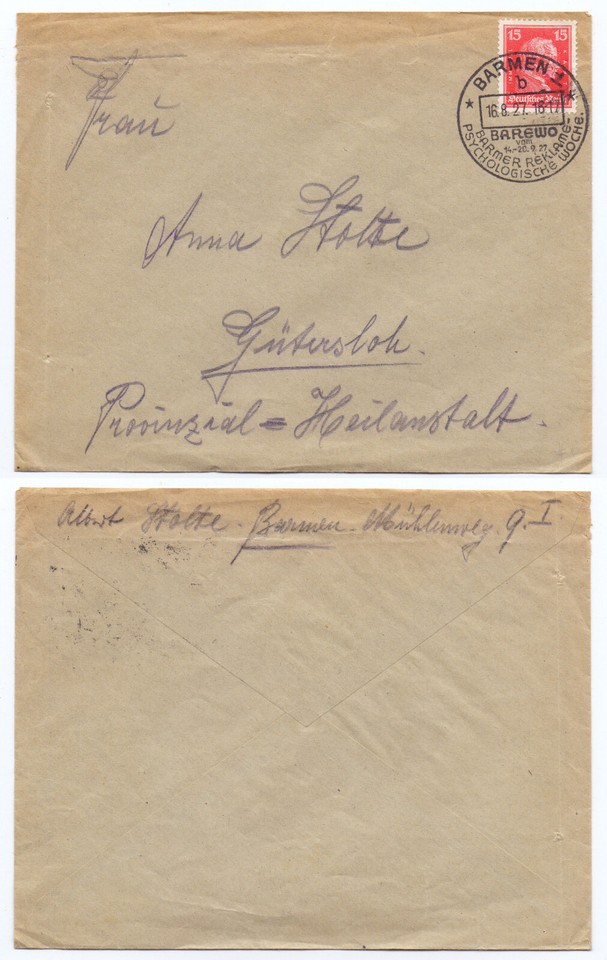 15 15
Deutsches Reich
BARMEN 1
b
16.8.27. 16-17
BAREWO
vom
14.-20.9.27
BARMER REKLAME-
PSYCHOLOGISCHE WOCHE.
Frau
Anna Stolte
Gütersloh.
Provinzial=Heilanstalt.
Albert Stolte. Barmen. Mühlenweg 9. I